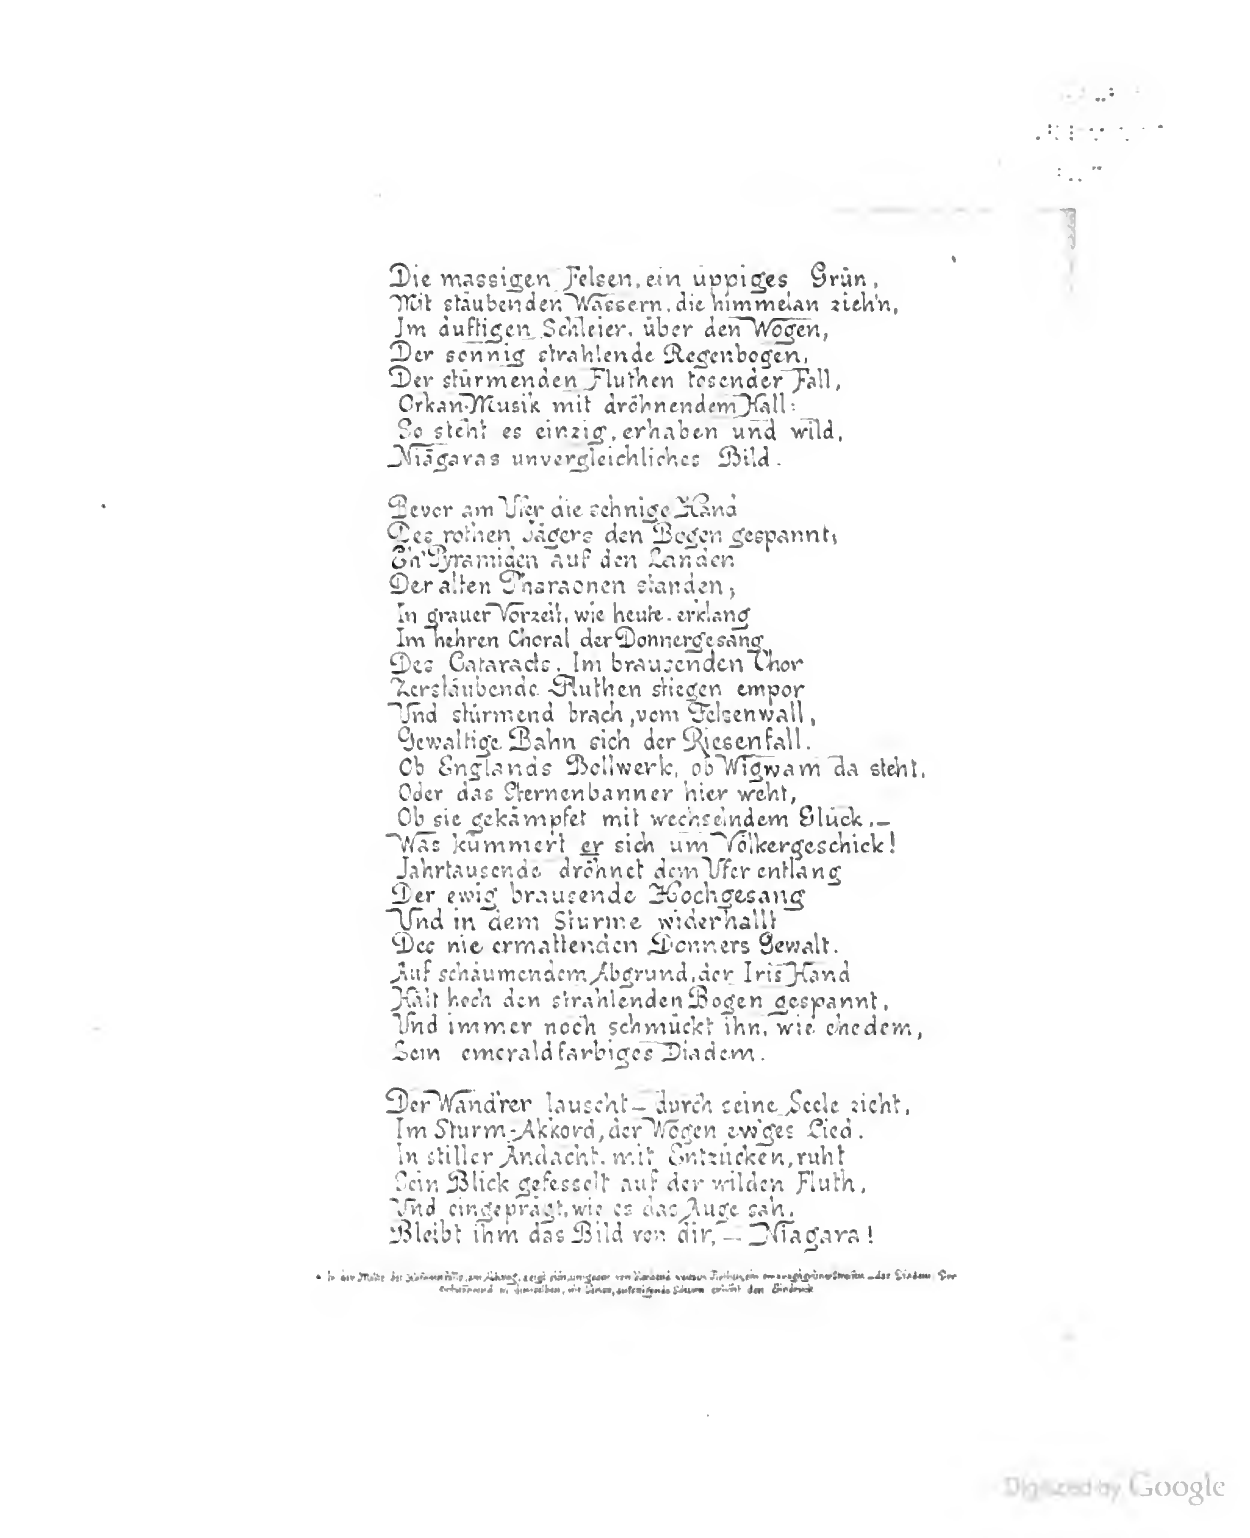 Die massigen Felsen, ein üppiges Grün,
Mit stäubenden Wassern, die himmelan zieh'n,
Im duftigen Schleier, über den Wogen,
Der sonnig strahlende Regenbogen,
Der stürmenden Fluthen tosender Fall,
Orkan-Musik mit dröhnendem Hall:
So steht es einzig, erhaben und wild,
Niagaras unvergleichliches Bild.
Bevor am Ufer die sehnige Hand
Des rothen Jägers den Bogen gespannt,
Eh' Pyramiden auf den Landen
Der alten Pharaonen standen,
In grauer Vorzeit, wie heute, erklang
Im hehren Choral der Donnergesang
Des Cataracts. Im brausenden Chor
Zerstäubende Fluthen stiegen empor
Und stürmend brach, vom Felsenwall,
Gewaltige Bahn sich der Riesenfall.
Ob Englands Bollwerk, ob Wigwam da steht,
Oder das Sternenbanner hier weht,
Ob sie gekämpfet mit wechselndem Glück, –
Was kümmert er sich um Völkergeschick!
Jahrtausende dröhnet dem Ufer entlang
Der ewig brausende Hochgesang
Und in dem Sturme widerhallt
Des nie ermattenden Donners Gewalt.
Auf schäumendem Abgrund, der Iris Hand
Hält hoch den strahlenden Bogen gespannt,
Und immer noch schmückt ihn, wie ehedem,
Sein emeraldfarbiges Diadem.
Der Wand'rer lauscht – durch seine Seele zieht,
Im Sturm-Akkord, der Wogen ew'ges Lied.
In stiller Andacht, mit Entzücken, ruht
Sein Blick gefesselt auf der wilden Fluth,
Und eingeprägt, wie es das Auge sah,
Bleibt ihm das Bild von dir, – Niagara!
* In der Mitte des
den Eindruck
Digitized by Google